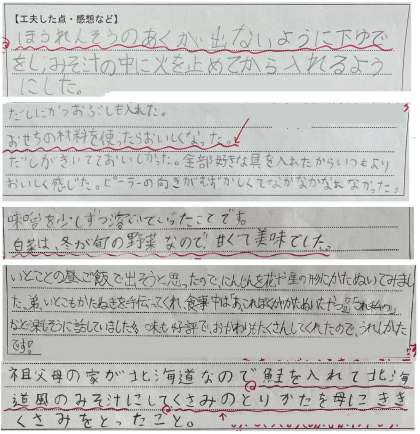 【工夫した点・感想など】
ほうれんそうのあくが出ないように下ゆで
をし、みそ汁の中に火を止めてから入れるよう
にした。
だしにかつおぶしも入れた。
おせちの材料を使ったらおいしくなった。
だしがきいてておいしかった。全部好きな具を入れたからいつもより
おいしく感じた。ピーラーの向きがむずかしくてなかなかなれなかった。
味噌を少しずつ溶いていったことです。
白菜は、冬が旬の野菜なので甘くて美味でした。
いとことの昼ご飯で出そうと思ったので、にんじんを花や星の形にかたぬいてみまし
た。弟、いとこもかたぬきを手伝ってくれ、食事中は「あ、これぼくがかたぬいたやつ
など楽しそうに話していました。味も好評で、おかわりもたくさんしてくれたので、うれしかった
です。
祖父母の家が北海道なので鮭を入れて北海
道風のみそ汁にしてくさみのとりかたを母にきき
くさみをとったこと。